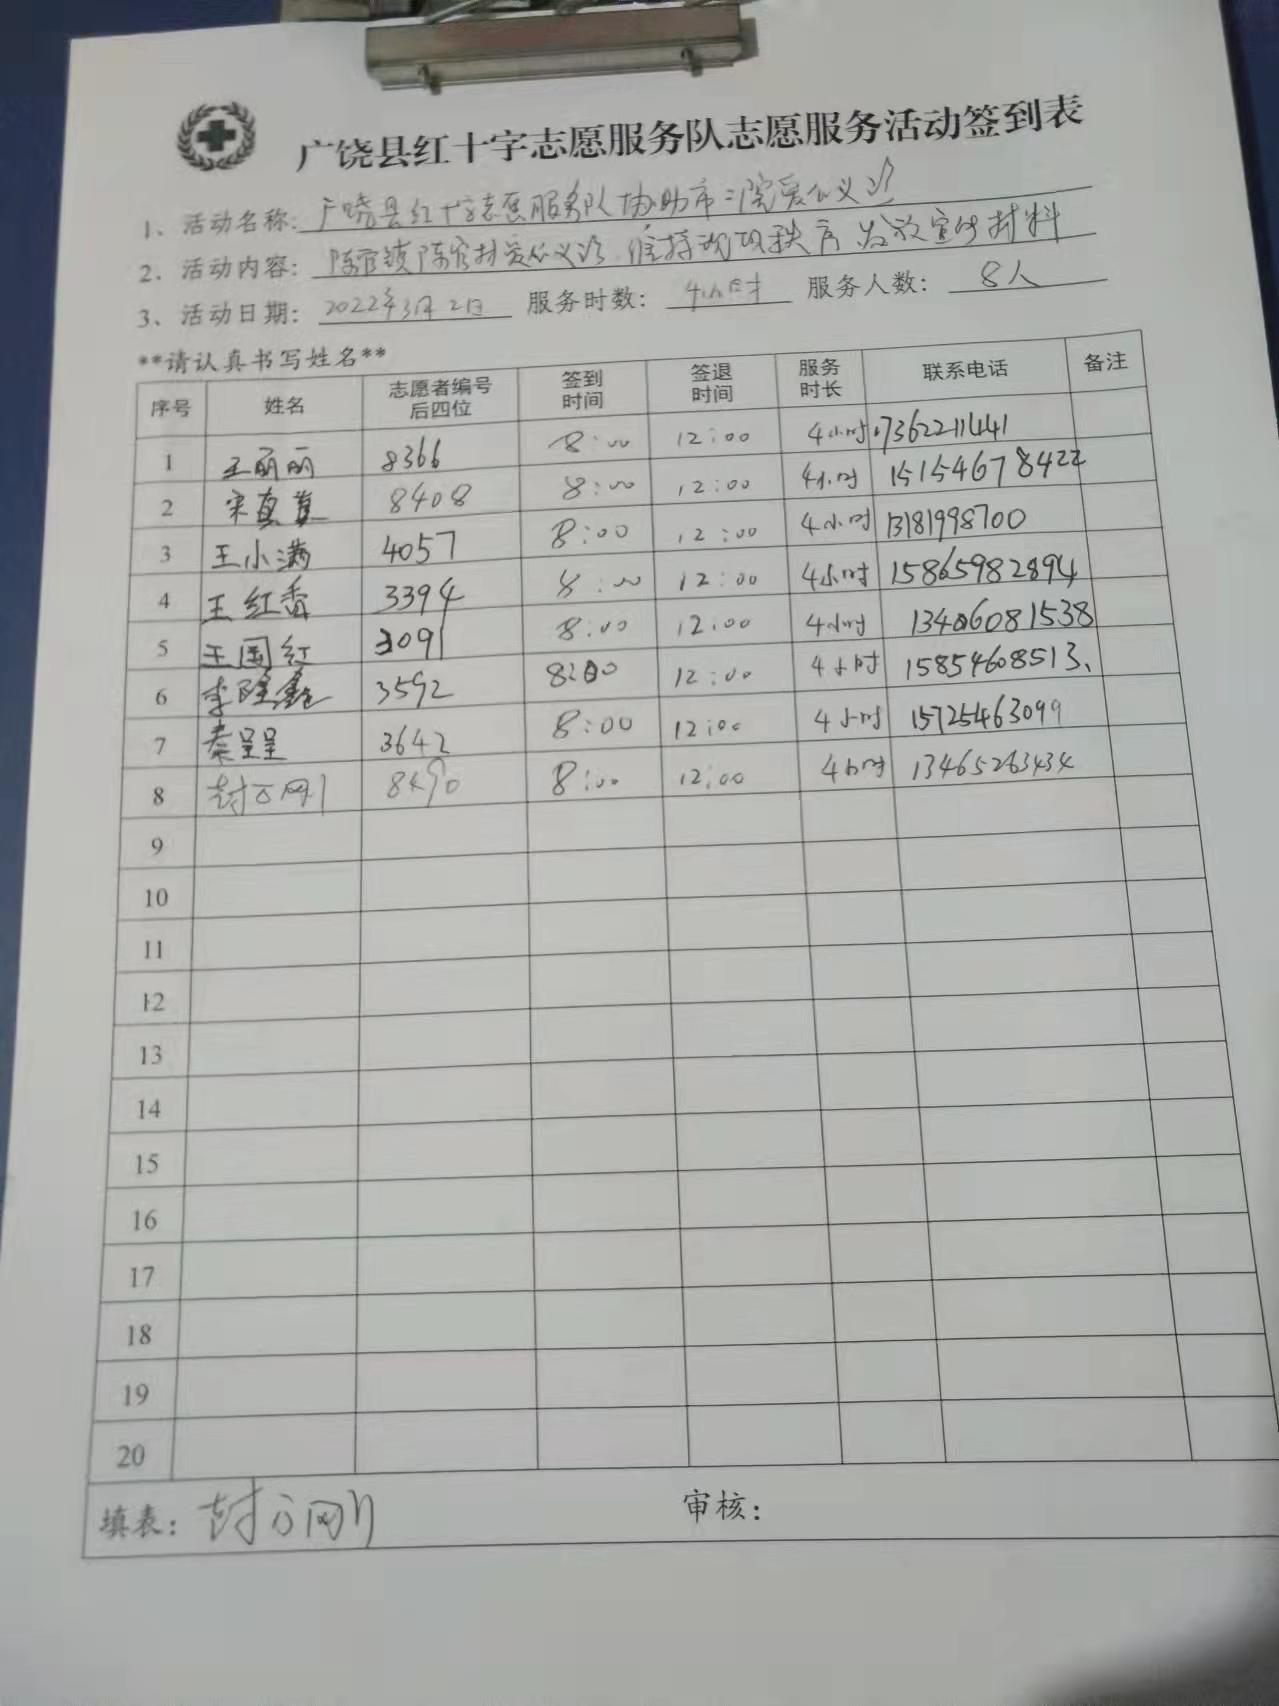 广饶县红十字志愿服务队志愿服务活动签到表
1、活动名称: 广饶县红十字志愿服务队协助市二院爱心义诊
2、活动内容: 陈官镇陈官村爱心义诊、维持现场秩序、发放宣传材料
3、活动日期: 2022年3月2日 服务时数: 4小时 服务人数: 8人
**请认真书写姓名**
序号 姓名 志愿者编号后四位 签到时间 签退时间 服务时长 联系电话 备注
1 王丽丽 8366 8:00 12:00 4小时 17362211441
2 宋真真 8408 8:00 12:00 4小时 15154678422
3 王小满 4057 8:00 12:00 4小时 13181998700
4 王红香 3394 8:00 12:00 4小时 15865982894
5 王国红 3091 8:00 12:00 4小时 13406081538
6 李隆鑫 3592 8:00 12:00 4小时 15854608513、
7 秦呈呈 3642 8:00 12:00 4小时 15725463099
8 封 刚 8490 8:00 12:00 4小时 13465263434
9
10
11
12
13
14
15
16
17
18
19
20
填表: 封 刚 审核: